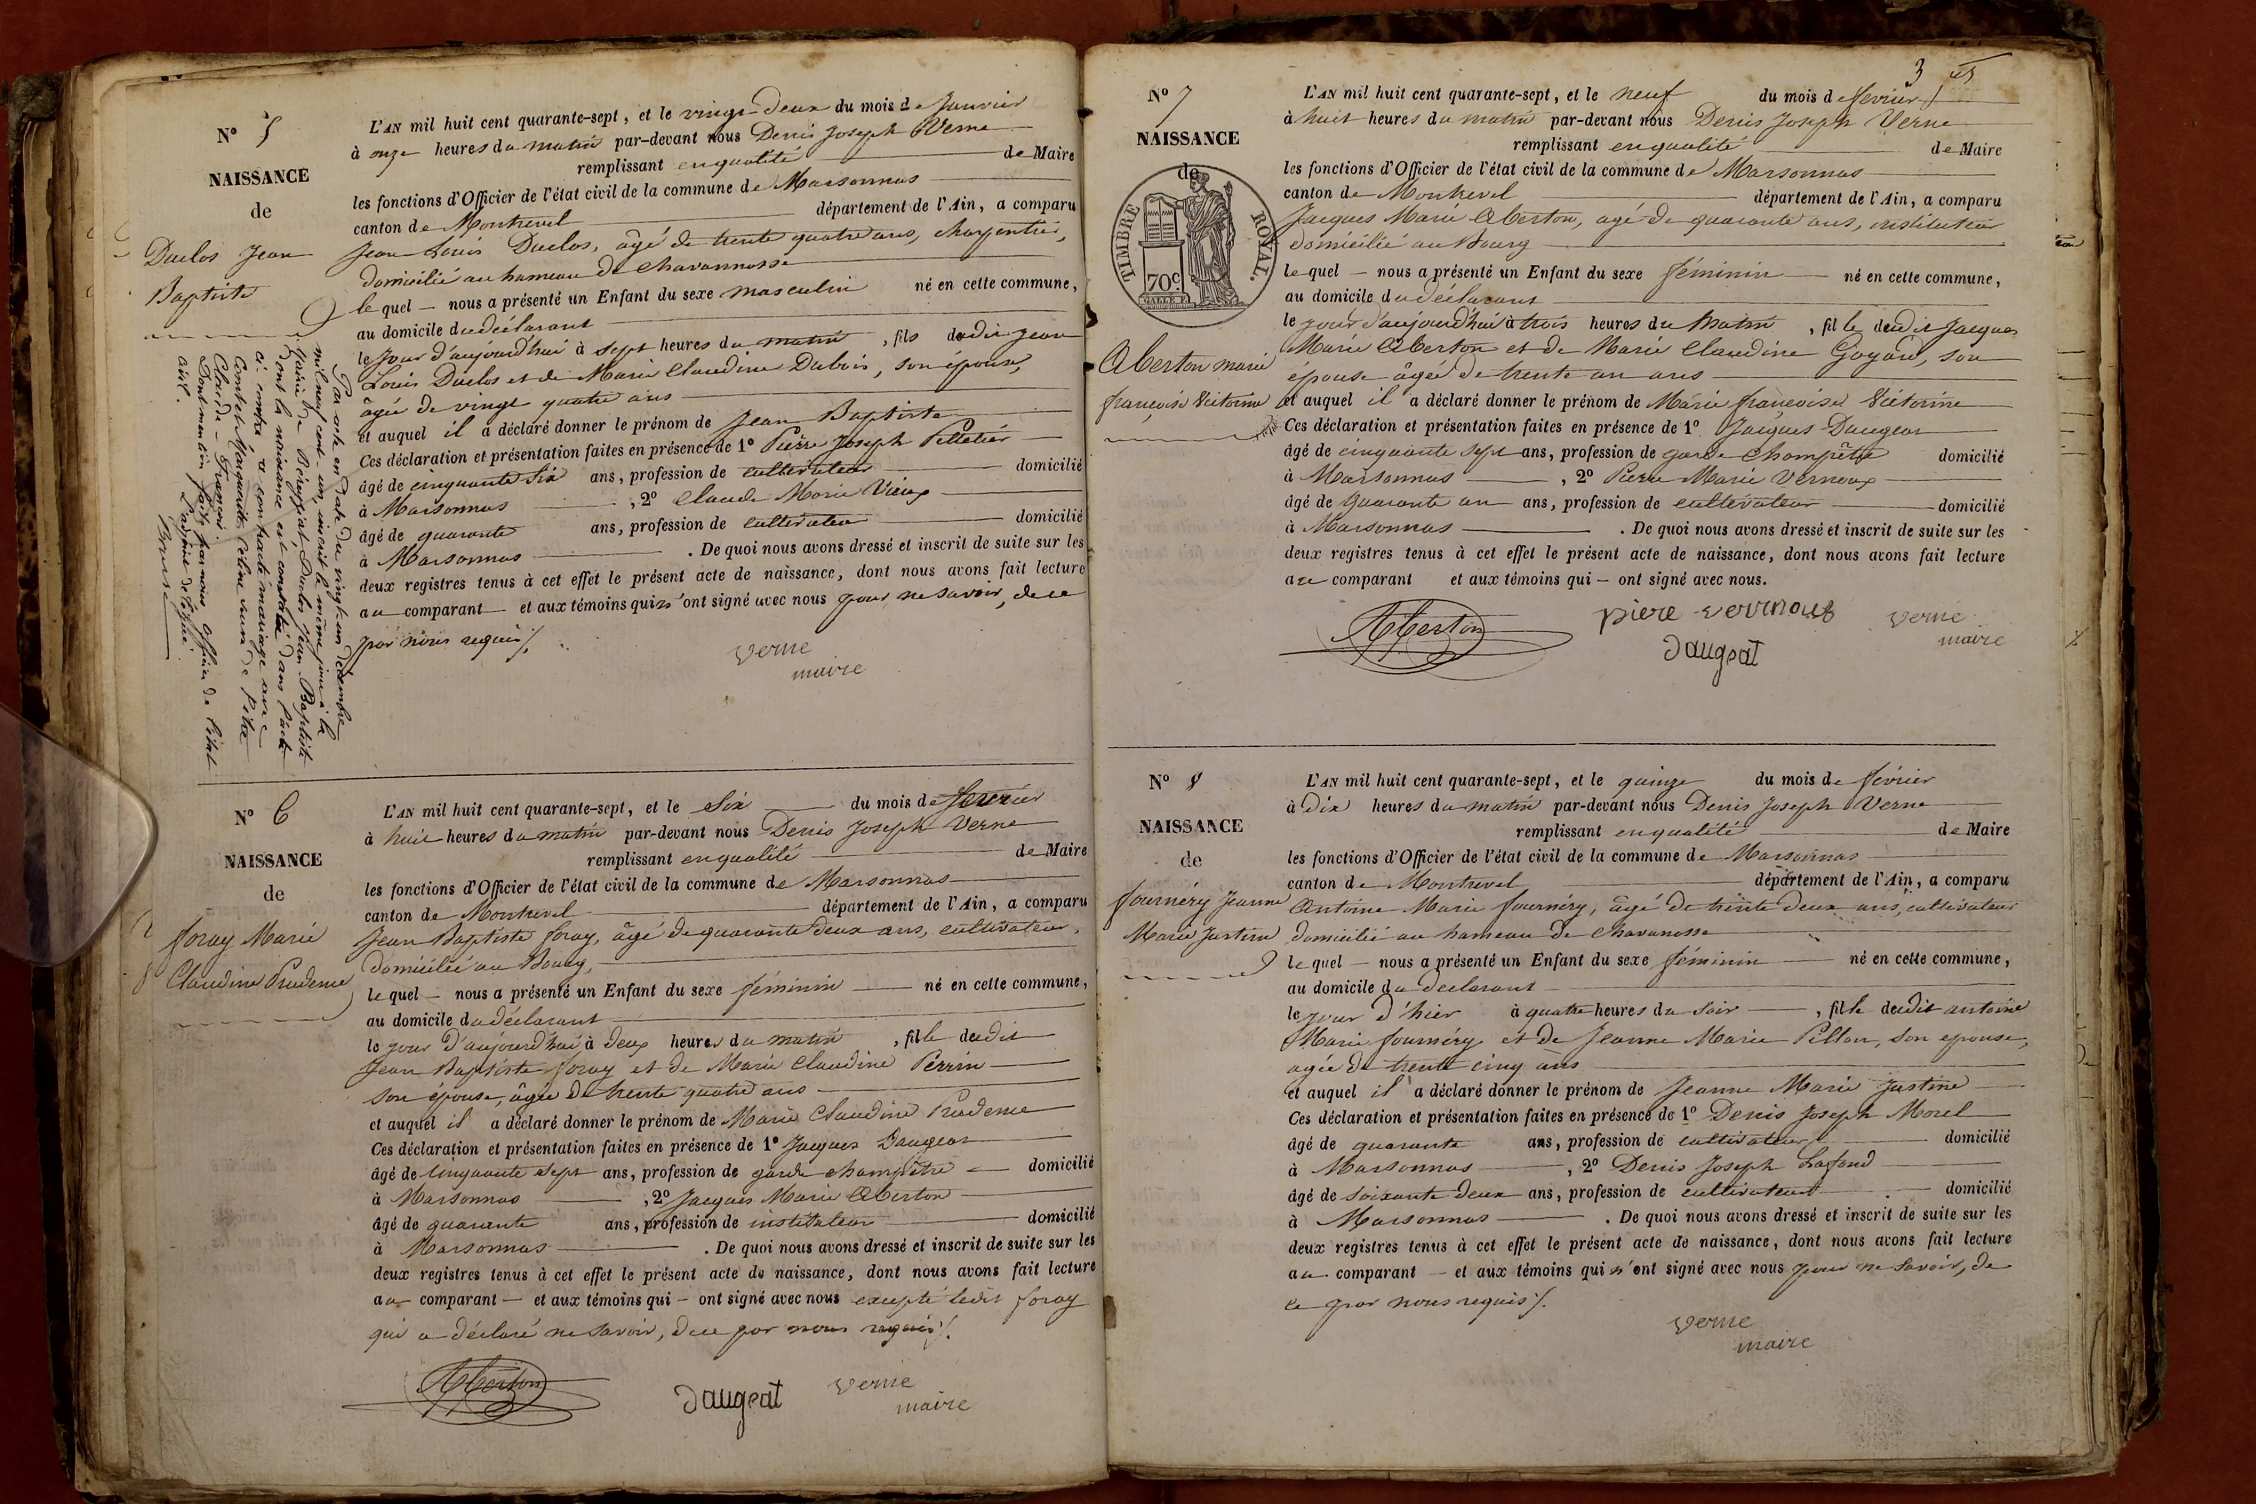 N° 5
NAISSANCE
de
Duclos Jean
Baptiste
L'AN mil huit cent quarante-sept, et le vingt-deux du mois de Janvier
à onze heures du matin par-devant nous Denis Joseph Verne
remplissant en qualité de Maire
les fonctions d'Officier de l'état civil de la commune de Marsonnas
canton de Montrevel département de l'Ain, a comparu
Jean Louis Duclos, âgé de trente quatre ans, charpentier,
domicilié au hameau de Chavannosse
lequel nous a présenté un Enfant du sexe masculin né en cette commune,
au domicile du déclarant
le jour d'aujourd'hui à sept heures du matin, fils dudit Jean
Louis Duclos et de Marie Claudine Dubois, son épouse,
âgée de vingt quatre ans
et auquel il a déclaré donner le prénom de Jean Baptiste
Ces déclaration et présentation faites en présence de 1° Pierre Joseph Pelletier
âgé de cinquante six ans, profession de cultivateur domicilié
à Marsonnas, 2° Claude Marie Vieux
âgé de quarante ans, profession de cultivateur domicilié
à Marsonnas. De quoi nous avons dressé et inscrit de suite sur les
deux registres tenus à cet effet le présent acte de naissance, dont nous avons fait lecture
au comparant et aux témoins qui n'ont signé avec nous pour ne savoir, de ce
par nous requis
Verne
maire
Par acte en date du vingt-un décembre
mil neuf cent-un, inscrit le même jour à la
mairie de Duclos Jean Baptiste
dont la naissance est constatée dans l'acte
ci contre a contracté mariage avec
Marguerite veuve de
Claude-François
Dont mention faite par nous officier de l'état
civil.
N° 6
NAISSANCE
de
Foray Marie
Claudine Prudence
L'AN mil huit cent quarante-sept, et le Six du mois de février
à huit heures du matin par-devant nous Denis Joseph Verne
remplissant en qualité de Maire
les fonctions d'Officier de l'état civil de la commune de Marsonnas
canton de Montrevel département de l'Ain, a comparu
Jean Baptiste Foray, âgé de quarante deux ans, cultivateur,
domicilié au Bourg,
lequel nous a présenté un Enfant du sexe féminin né en cette commune,
au domicile du déclarant
le jour d'aujourd'hui à deux heures du matin, fille dudit
Jean Baptiste Foray et de Marie Claudine Perrin
son épouse, âgée de trente quatre ans
et auquel il a déclaré donner le prénom de Marie Claudine Prudence
Ces déclaration et présentation faites en présence de 1° Jacques Daugeat
âgé de cinquante sept ans, profession de garde champêtre domicilié
à Marsonnas, 2° Jacques Marie Aberton
âgé de quarante ans, profession de instituteur domicilié
à Marsonnas. De quoi nous avons dressé et inscrit de suite sur les
deux registres tenus à cet effet le présent acte de naissance, dont nous avons fait lecture
au comparant et aux témoins qui ont signé avec nous excepté ledit Foray
qui a déclaré ne savoir, de ce par nous requis
Aberton
Daugeat
Verne
maire
3
N° 7
NAISSANCE
de
TIMBRE ROYAL.
70c
Aberton Marie
françoise Victorine
L'AN mil huit cent quarante-sept, et le neuf du mois de février
à huit heures du matin par-devant nous Denis Joseph Verne
remplissant en qualité de Maire
les fonctions d'Officier de l'état civil de la commune de Marsonnas
canton de Montrevel département de l'Ain, a comparu
Jacques Marie Aberton, âgé de quarante ans, instituteur
domicilié au Bourg
lequel nous a présenté un Enfant du sexe féminin né en cette commune,
au domicile du déclarant
le jour d'aujourd'hui à trois heures du matin, fille dudit Jacques
Marie Aberton et de Marie Claudine Goyard, son
épouse âgée de trente un ans
et auquel il a déclaré donner le prénom de Marie françoise Victorine
Ces déclaration et présentation faites en présence de 1° Jacques Daugeat
âgé de cinquante sept ans, profession de garde champêtre domicilié
à Marsonnas, 2° Pierre Marie Vernoux
âgé de quarante un ans, profession de cultivateur domicilié
à Marsonnas. De quoi nous avons dressé et inscrit de suite sur les
deux registres tenus à cet effet le présent acte de naissance, dont nous avons fait lecture
au comparant et aux témoins qui ont signé avec nous.
Aberton
piere vernoux
Daugeat
Verne
maire
N° 8
NAISSANCE
de
fournéry Jeanne
Marie Justine
L'AN mil huit cent quarante-sept, et le quinze du mois de février
à dix heures du matin par-devant nous Denis Joseph Verne
remplissant en qualité de Maire
les fonctions d'Officier de l'état civil de la commune de Marsonnas
canton de Montrevel département de l'Ain, a comparu
Antoine Marie fournéry, âgé de trente deux ans, cultivateur
domicilié au hameau de Chavanosse
lequel nous a présenté un Enfant du sexe féminin né en cette commune,
au domicile du declarant
le jour d'hier à quatre heures du soir, fille dudit antoine
Marie fournéry et de Jeanne Marie Pillon, son epouse,
agée de trente cinq ans
et auquel il a déclaré donner le prénom de Jeanne Marie Justine
Ces déclaration et présentation faites en présence de 1° Denis Joseph Morel
âgé de quarante ans, profession de cultivateur domicilié
à Marsonnas, 2° Denis Joseph Lafond
âgé de soixante deux ans, profession de cultivateur domicilié
à Marsonnas. De quoi nous avons dressé et inscrit de suite sur les
deux registres tenus à cet effet le présent acte de naissance, dont nous avons fait lecture
au comparant et aux témoins qui n'ont signé avec nous pour ne savoir, de
ce par nous requis
Verne
maire